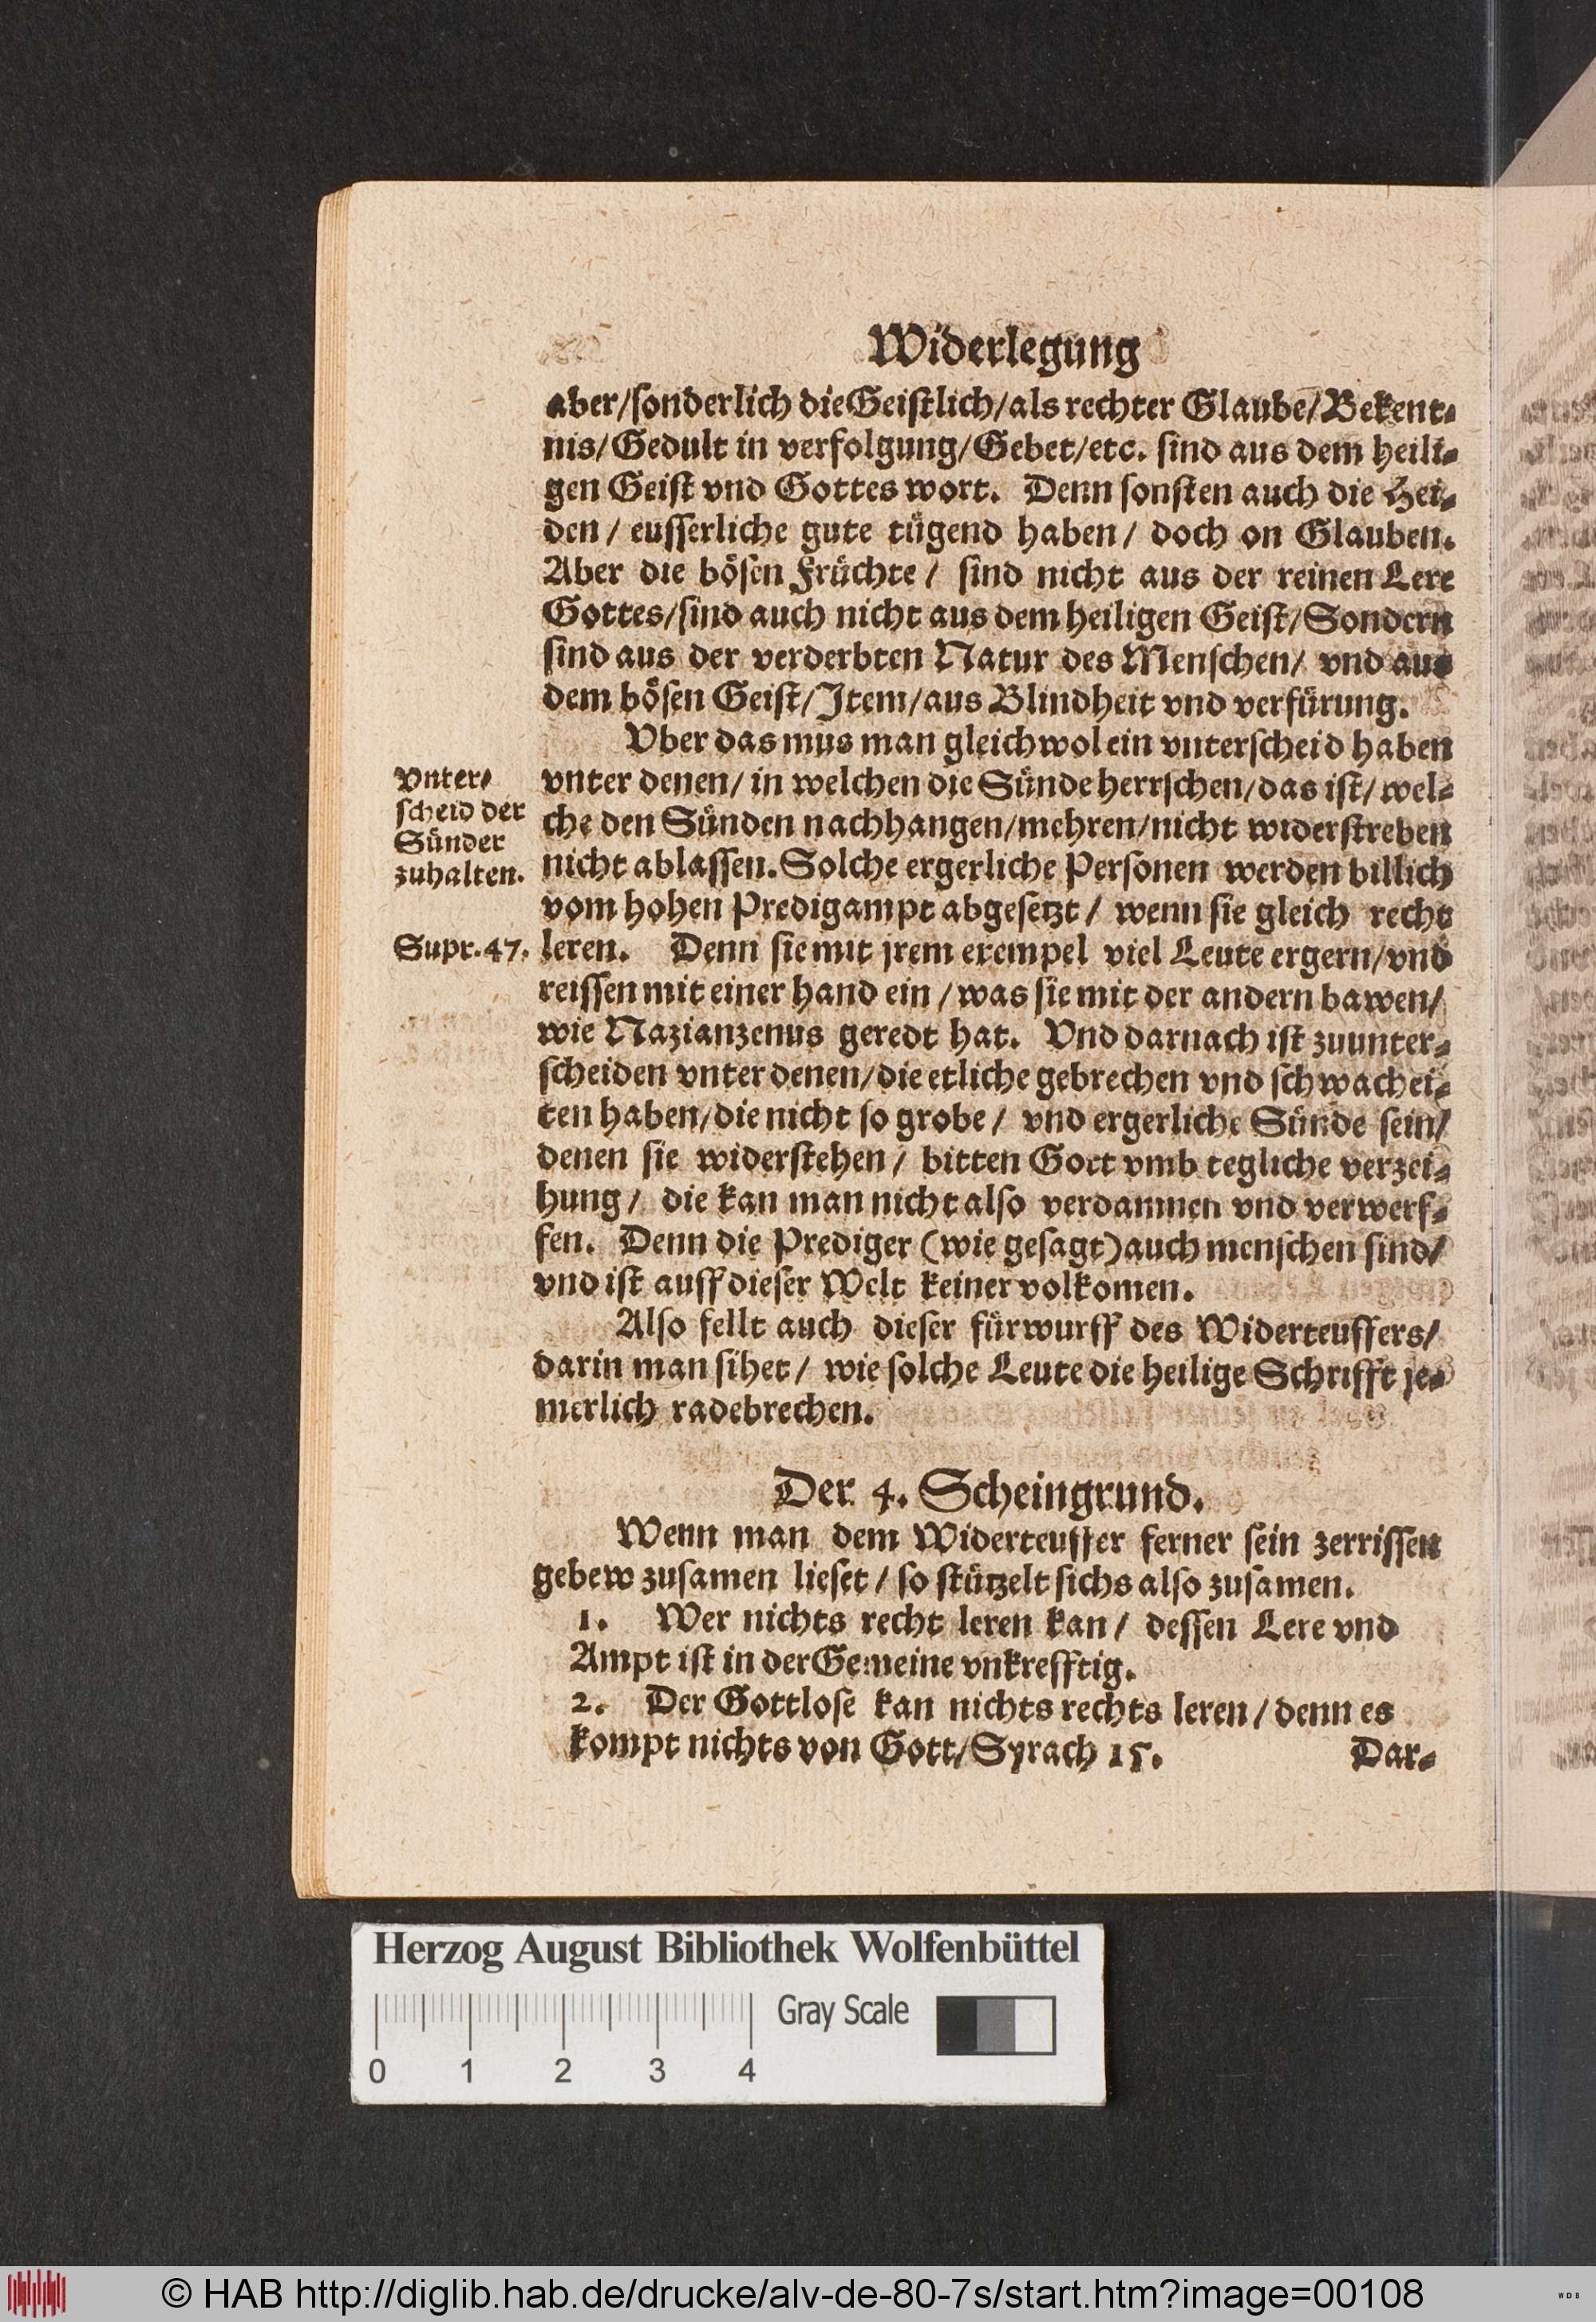 Widerlegung
aber/sonderlich die Geistlich/als rechter Glaube/Bekent⸗
nis/Gedult in verfolgung/Gebet/etc. sind aus dem heili⸗
gen Geist vnd Gottes wort. Denn sonsten auch die Hei⸗
den / eusserliche gute tügend haben / doch on Glauben.
Aber die bösen Früchte / sind nicht aus der reinen Lere
Gottes/sind auch nicht aus dem heiligen Geist/Sondern
sind aus der verderbten Natur des Menschen/ vnd aus
dem bösen Geist/Item/aus Blindheit vnd verfürung.
Vber das mus man gleichwol ein vnterscheid haben
Vnter⸗
scheid der
Sünder
zuhalten.
vnter denen/ in welchen die Sünde herrschen/das ist/ wel⸗
che den Sünden nachhangen/mehren/nicht widerstreben
nicht ablassen. Solche ergerliche Personen werden billich
vom hohen Predigampt abgesetzt / wenn sie gleich recht
Supr. 47.
leren. Denn sie mit jrem exempel viel Leute ergern/vnd
reissen mit einer hand ein / was sie mit der andern bawen/
wie Nazianzenus geredt hat. Vnd darnach ist zuunter⸗
scheiden vnter denen/die etliche gebrechen vnd schwachei⸗
ten haben/die nicht so grobe / vnd ergerliche Sünde sein/
denen sie widerstehen / bitten Gott vmb tegliche verzei⸗
hung / die kan man nicht also verdammen vnd verwerf⸗
fen. Denn die Prediger (wie gesagt) auch menschen sind/
vnd ist auff dieser Welt keiner volkomen.
Also fellt auch dieser fürwurff des Widerteuffers/
darin man sihet / wie solche Leute die heilige Schrifft je⸗
merlich radebrechen.
Der 4. Scheingrund.
Wenn man dem Widerteuffer ferner sein zerrissen
gebew zusamen lieset / so stützelt sichs also zusamen.
1. Wer nichts recht leren kan / dessen Lere vnd
Ampt ist in der Gemeine vnkrefftig.
2. Der Gottlose kan nichts rechts leren / denn es
kompt nichts von Gott/Syrach 15.
Dar⸗
Herzog August Bibliothek Wolfenbüttel
Gray Scale
0 1 2 3 4
© HAB http://diglib.hab.de/drucke/alv-de-80-7s/start.htm?image=00108
WDB